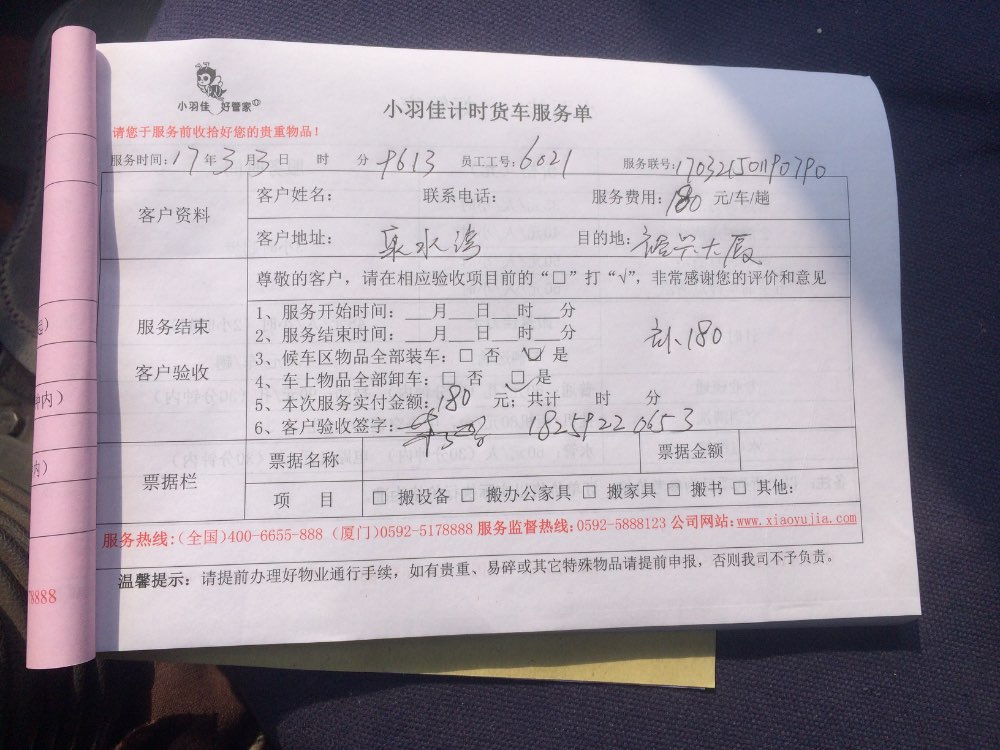 小羽佳 好管家
小羽佳计时货车服务单
请您于服务前收拾好您的贵重物品！
服务时间：17年3月3日 时 分 9613 员工工号：6021 服务联号：170321501190790
客户资料
客户姓名： 联系电话： 服务费用：180 元/车/趟
客户地址： 泉水湾 目的地：裕兴大厦
服务结束
客户验收
尊敬的客户，请在相应验收项目前的“□”打“√”，非常感谢您的评价和意见
1、服务开始时间：___月___日___时___分
2、服务结束时间：___月___日___时___分
3、候车区物品全部装车：□ 否 ☑ 是
4、车上物品全部卸车：□ 否 ☑ 是
5、本次服务实付金额：180 元；共计 时 分
6、客户验收签字： 18259220653
180
票据栏
票据名称 票据金额
项 目 □ 搬设备 □ 搬办公家具 □ 搬家具 □ 搬书 □ 其他：
服务热线：（全国）400-6655-888（厦门）0592-5178888 服务监督热线：0592-5888123 公司网站：www.xiaoyujia.com
温馨提示：请提前办理好物业通行手续，如有贵重、易碎或其它特殊物品请提前申报，否则我司不予负责。
钟内）
内）
78888